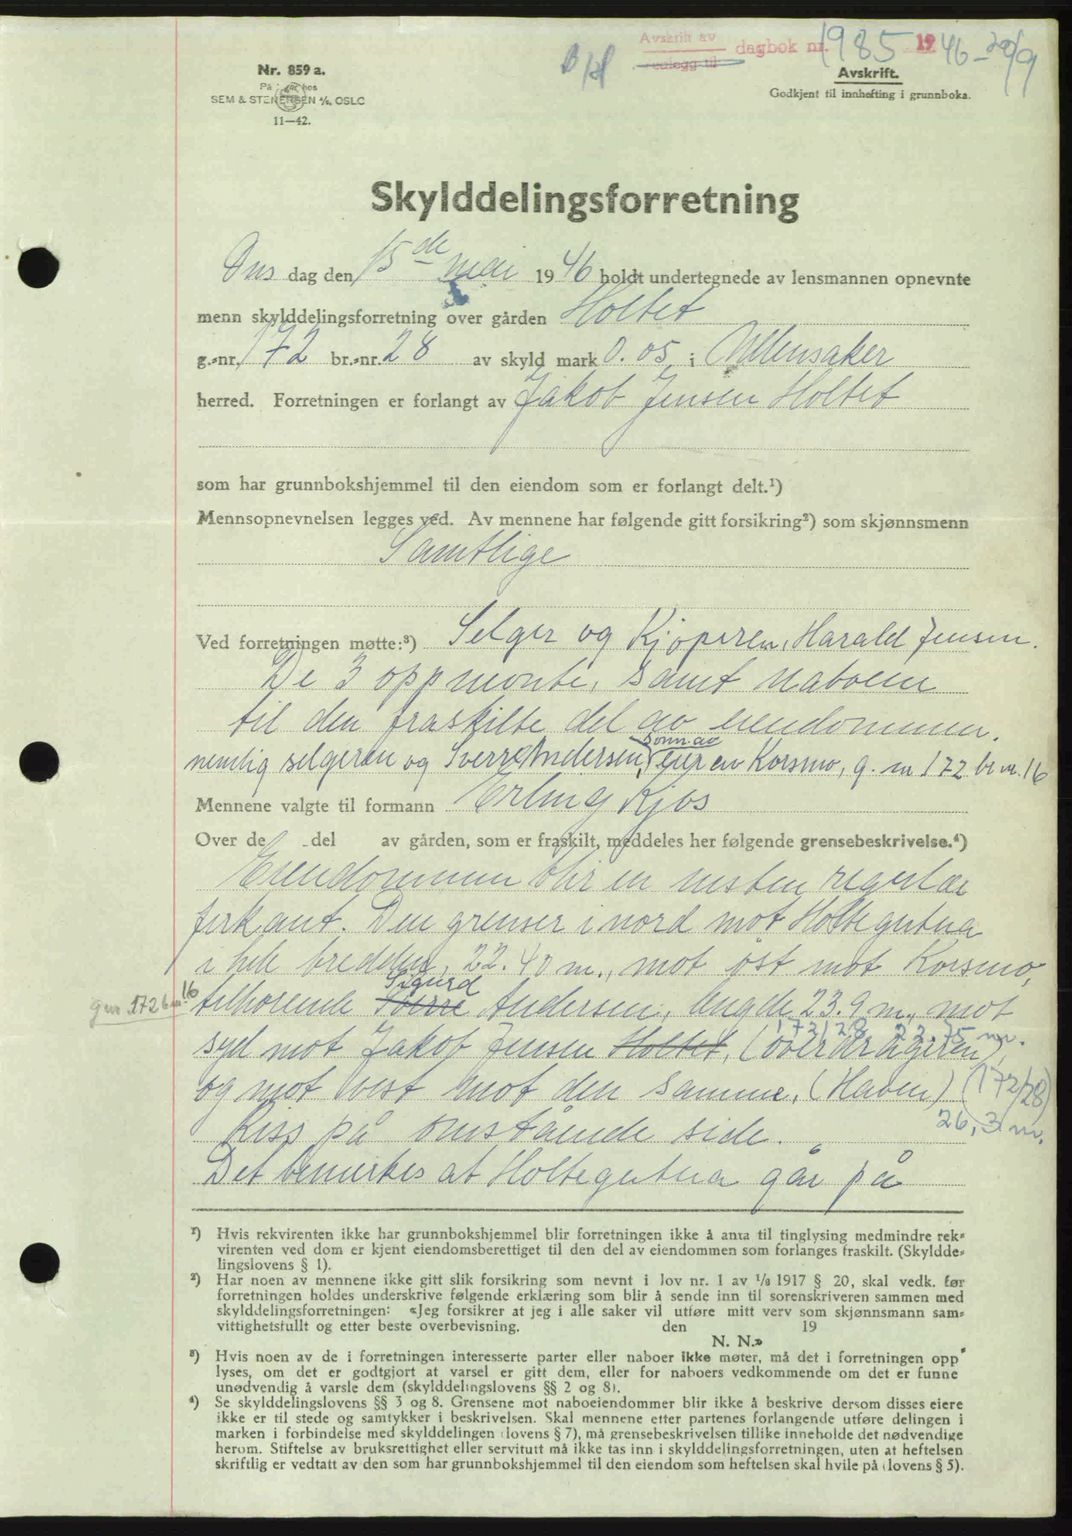 Avskrift av dagbok nr. 1985 1946 - 20/9
vedlegg til
Nr. 859 a.
På lager hos
SEM & STENERSEN A/S, OSLO
11—42.
Avskrift.
Godkjent til innhefting i grunnboka.
Skylddelingsforretning
Ons dag den 15de mai 1946 holdt undertegnede av lensmannen opnevnte
menn skylddelingsforretning over gården Holtet
g.-nr. 172 br.-nr. 28 av skyld mark 0.05, i Ullensaker
herred. Forretningen er forlangt av Jakob Jensen Holtet
som har grunnbokshjemmel til den eiendom som er forlangt delt.¹)
Mennsopnevnelsen legges ved. Av mennene har følgende gitt forsikring²) som skjønnsmenn
Samtlige
Ved forretningen møtte:³) Selger og Kjøperen, Harald Jensen.
De 3 oppnevnte, samt naboene
til den fraskilte del av eiendommen.
sønn av
nemlig selgeren og Sverre Andersen, eier av Korsmo, g. nr 172 br. nr. 16
Mennene valgte til formann Erling Kjos
Over de del av gården, som er fraskilt, meddeles her følgende grensebeskrivelse.⁴)
Eiendommen blir en nesten regulær
firkant. Den grenser i nord mot Holtegutua
i hele bredden, 22.40 m., mot øst mot Korsmo,
Sigurd
gnr. 172 b.nr. 16 tilhørende Sverre Andersen, lengde 23.9 m., mot
172/28 22,75 m.
syd mot Jakob Jensen Holtet, (overdrageren),
og mot vest mot den samme, (Haven) (172/28)
26,3 m.
Riss på omstående side.
Det bemerkes at Holtegutua går på
¹) Hvis rekvirenten ikke har grunnbokshjemmel blir forretningen ikke å anta til tinglysing medmindre rek-
virenten ved dom er kjent eiendomsberettiget til den del av eiendommen som forlanges fraskilt. (Skyldde-
lingslovens § 1).
²) Har noen av mennene ikke gitt slik forsikring som nevnt i lov nr. 1 av 1/6 1917 § 20, skal vedk. før
forretningen holdes underskrive følgende erklæring som blir å sende inn til sorenskriveren sammen med
skylddelingsforretningen: «Jeg forsikrer at jeg i alle saker vil utføre mitt verv som skjønnsmann sam-
vittighetsfullt og etter beste overbevisning. den 19
N. N.»
³) Hvis noen av de i forretningen interesserte parter eller naboer ikke møter, må det i forretningen opp
lyses, om det er godtgjort at varsel er gitt dem, eller for naboers vedkommende om det er funne
unødvendig å varsle dem (skylddelingslovens §§ 2 og 8).
⁴) Se skylddelingslovens §§ 3 og 8. Grensene mot naboeiendommer blir ikke å beskrive dersom disses eiere
ikke er til stede og samtykker i beskrivelsen. Skal mennene etter partenes forlangende utføre delingen i
marken i forbindelse med skylddelingen (lovens § 7), må grensebeskrivelsen tillike inneholde det nødvendige
herom. Stiftelse av bruksrettighet eller servitutt må ikke tas inn i skylddelingsforretningen, uten at heftelsen
skriftlig er vedtatt av den som har grunnbokshjemmel til den eiendom som heftelsen skal hvile på (lovens § 5).